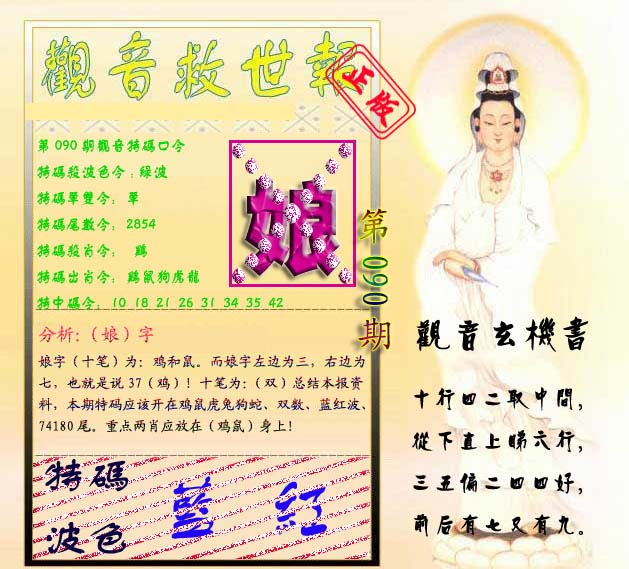 觀音救世報
正版
第090期觀音特碼口令
特碼殺波色令:綠波
特碼單雙令: 單
特碼尾數令: 2854
特碼殺肖令: 鷄
特碼出肖令: 鷄鼠狗虎龍
特中碼令: 10 18 21 26 31 34 35 42
娘
第090期
分析:（娘）字
娘字（十笔）为：鸡和鼠。而娘字左边为三，右边为
七，也就是说 37（鸡）！十笔为：（双）总结本报资
料，本期特码应该开在鸡鼠虎兔狗蛇、双数、蓝红波、
74180 尾。重点两肖应放在（鸡鼠）身上！
特碼
波色
藍 紅
觀音玄機書
十行四二取中間，
從下直上睇六行，
三五偏二四四好，
前后有七又有九。